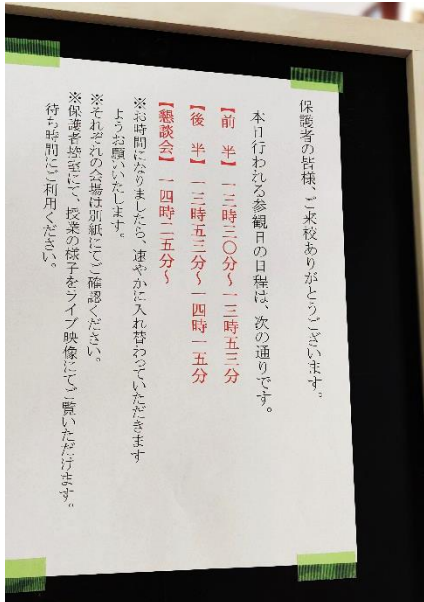 保護者の皆様、ご来校ありがとうございます。
本日行われる参観日の日程は、次の通りです。
【前　半】一三時三〇分～一三時五三分
【後　半】一三時五三分～一四時一五分
【懇談会】一四時二五分～
※お時間になりましたら、速やかに入れ替わっていただきます
ようお願いいたします。
※それぞれの会場は別紙にてご確認ください。
※保護者控室にて、授業の様子をライブ映像にてご覧いただけます。
待ち時間にご利用ください。